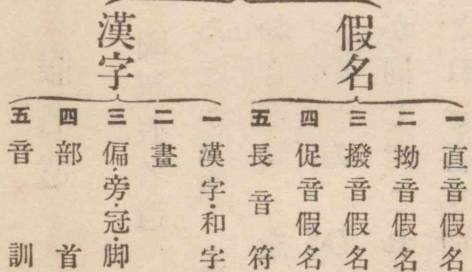 假名
一 直音假名
二 拗音假名
三 撥音假名
四 促音假名
五 長音符
漢字
一 漢字・和字
二 畫
三 偏・旁・冠・脚
四 部首
五 音訓